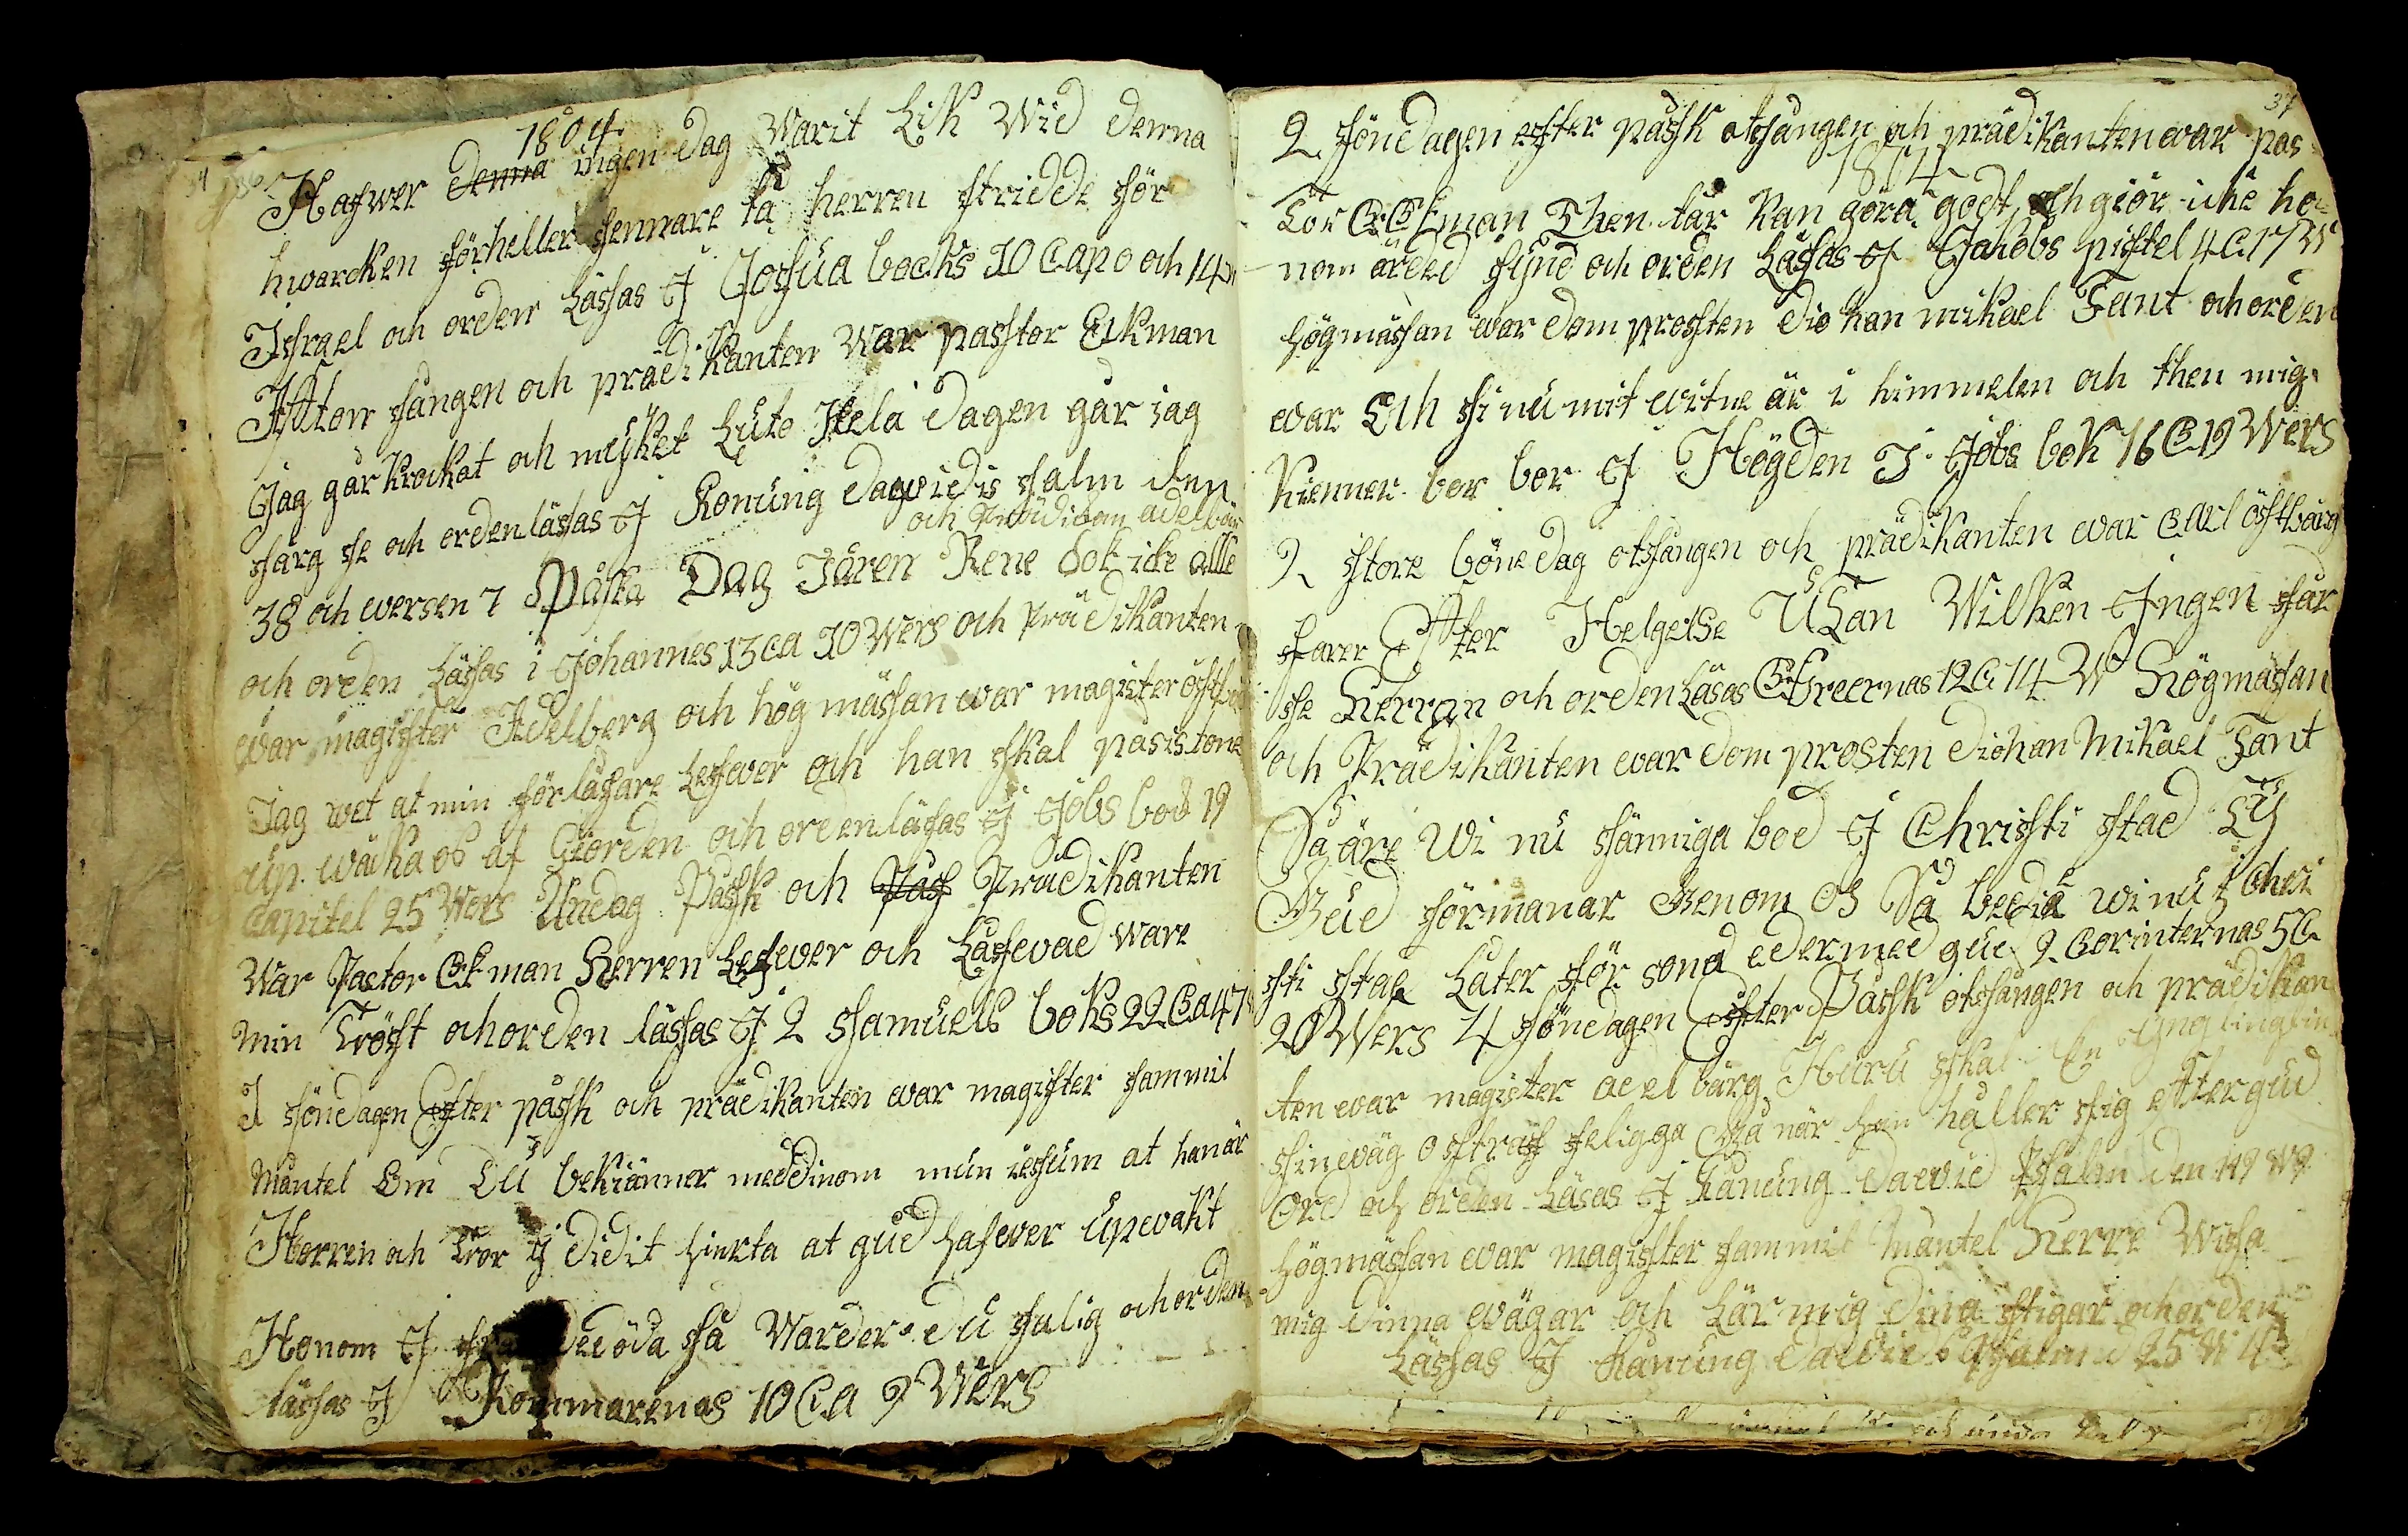 1804
Hafwer denna ingen dag Warit Lik Wid denna
hwarcken förheller sennare tå herren stridde för
Israel och orden Lässas I Josua bocks 10 Cap och 14
Afton sången och prädikanten War pastor Ekman
Jag går krockot och mÿket Luto Hela dagen går jag
sörg se och orden lässas I Konung dawidis salm den
och Prädikan adelbär
38 och wersen 7 Påska Dag Iären Rene dok icke alle
och orden Lässas i Johannes 13 ca 10 Wers och Prädikanten
war magister Adelberg och hög mässan war magister östb
Jag wet at min förlåsare Lefwer och han skal påsistone
up wäcka os af Giorden och orden läsas I Jobs bock 19
Capitel 25 Wers Anedag Påsk och Pas Prädikanten
War Pastor Ekman Herren Lefwer och Låfwad ware
min Tröst och orden lässas I 2 samuels boks 22 Ca 47
1 söndagen Efter påssk och prädikanten war magister sammil
Mantel Om Du bekiänner med dinom mun iesum at han är
Herren och Tror I didit hierta at gud hafwer Upwakt
Honom I fr de döda så Warder du salig och orden
lässas I Rommarenas 10 Ca 9 Wers
37
2 söndagen efter påssk otsången och prädikanten war pas
1804
tor Ekman Then tär kan göra godt och giör icke ho=
nom ärded sÿnd och orden Läsas I Jakobs pistel 4 C 17 W
högmässan war dom prosten dio han mikael Fant och orden
war Och si nu mit witne är i himmelen och then mig
kienner bor bor I Högden I Jobs bok 16 C 19 Wers
2 store böne dag otsången och prädikanten war Carl östbärg
farer Efter Helgelse Utan Wilken Ingen får
se Herran och orden Läsas Ebreernas 12 C 14 W Högmässan
och Prädikanten war dom prosten diohan Mikael Fant
Så äre Wi nu sänniga bod I Christi stad Tÿ
Gud förmanar Genom Os Så bedia wi nu I Chri
sti stad Låter för sona eder med gud 2 Corinternas 5 C
20 Wers 4 söndagen Efter Påssk otsången och prädikan
ten war magister adelbärg Huru skal En Ynglingfin
sin wäg ostraf feligga Gå när han håller sig efter gud
Ord och orden Läsas I Kånung dawid Psalm den 119 W 9
högmässan war magister sammil Mantel Herre Wisa
mig dinna wägar och Lär mig dina stigar och orden
Lässas I Kånung dawids Psalm d 25 W 4